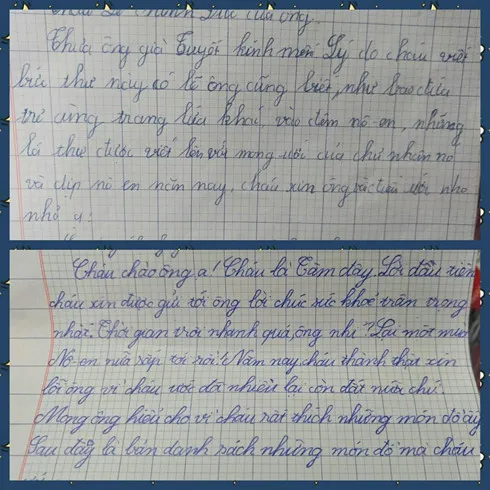 của ông.
Thưa ông già Tuyết kính mến Lý do cháu viết
bức thư này có lẽ ông cũng biết, như bao đứa
trẻ cùng trang lứa khác, vào đêm nô-en, những
lá thư được viết lên với mong ước của chủ nhân nó
và dịp nô en năm nay, cháu xin ông ước nho
nhỏ ạ:
Cháu chào ông ạ! Cháu là Tâm đây. Lời đầu tiên
cháu xin được gửi tới ông lời chúc sức khoẻ trân trọng
nhất. Thời gian trôi nhanh quá, ông nhỉ? Lại một mùa
Nô-en nữa sắp tới rồi! Năm nay, cháu thành thật xin
lỗi ông vì cháu ước đã nhiều lại còn đắt nữa chứ.
Mong ông hiểu cho vì cháu rất thích những món đồ ấy
Sau đây là bản danh sách những món đồ mà cháu